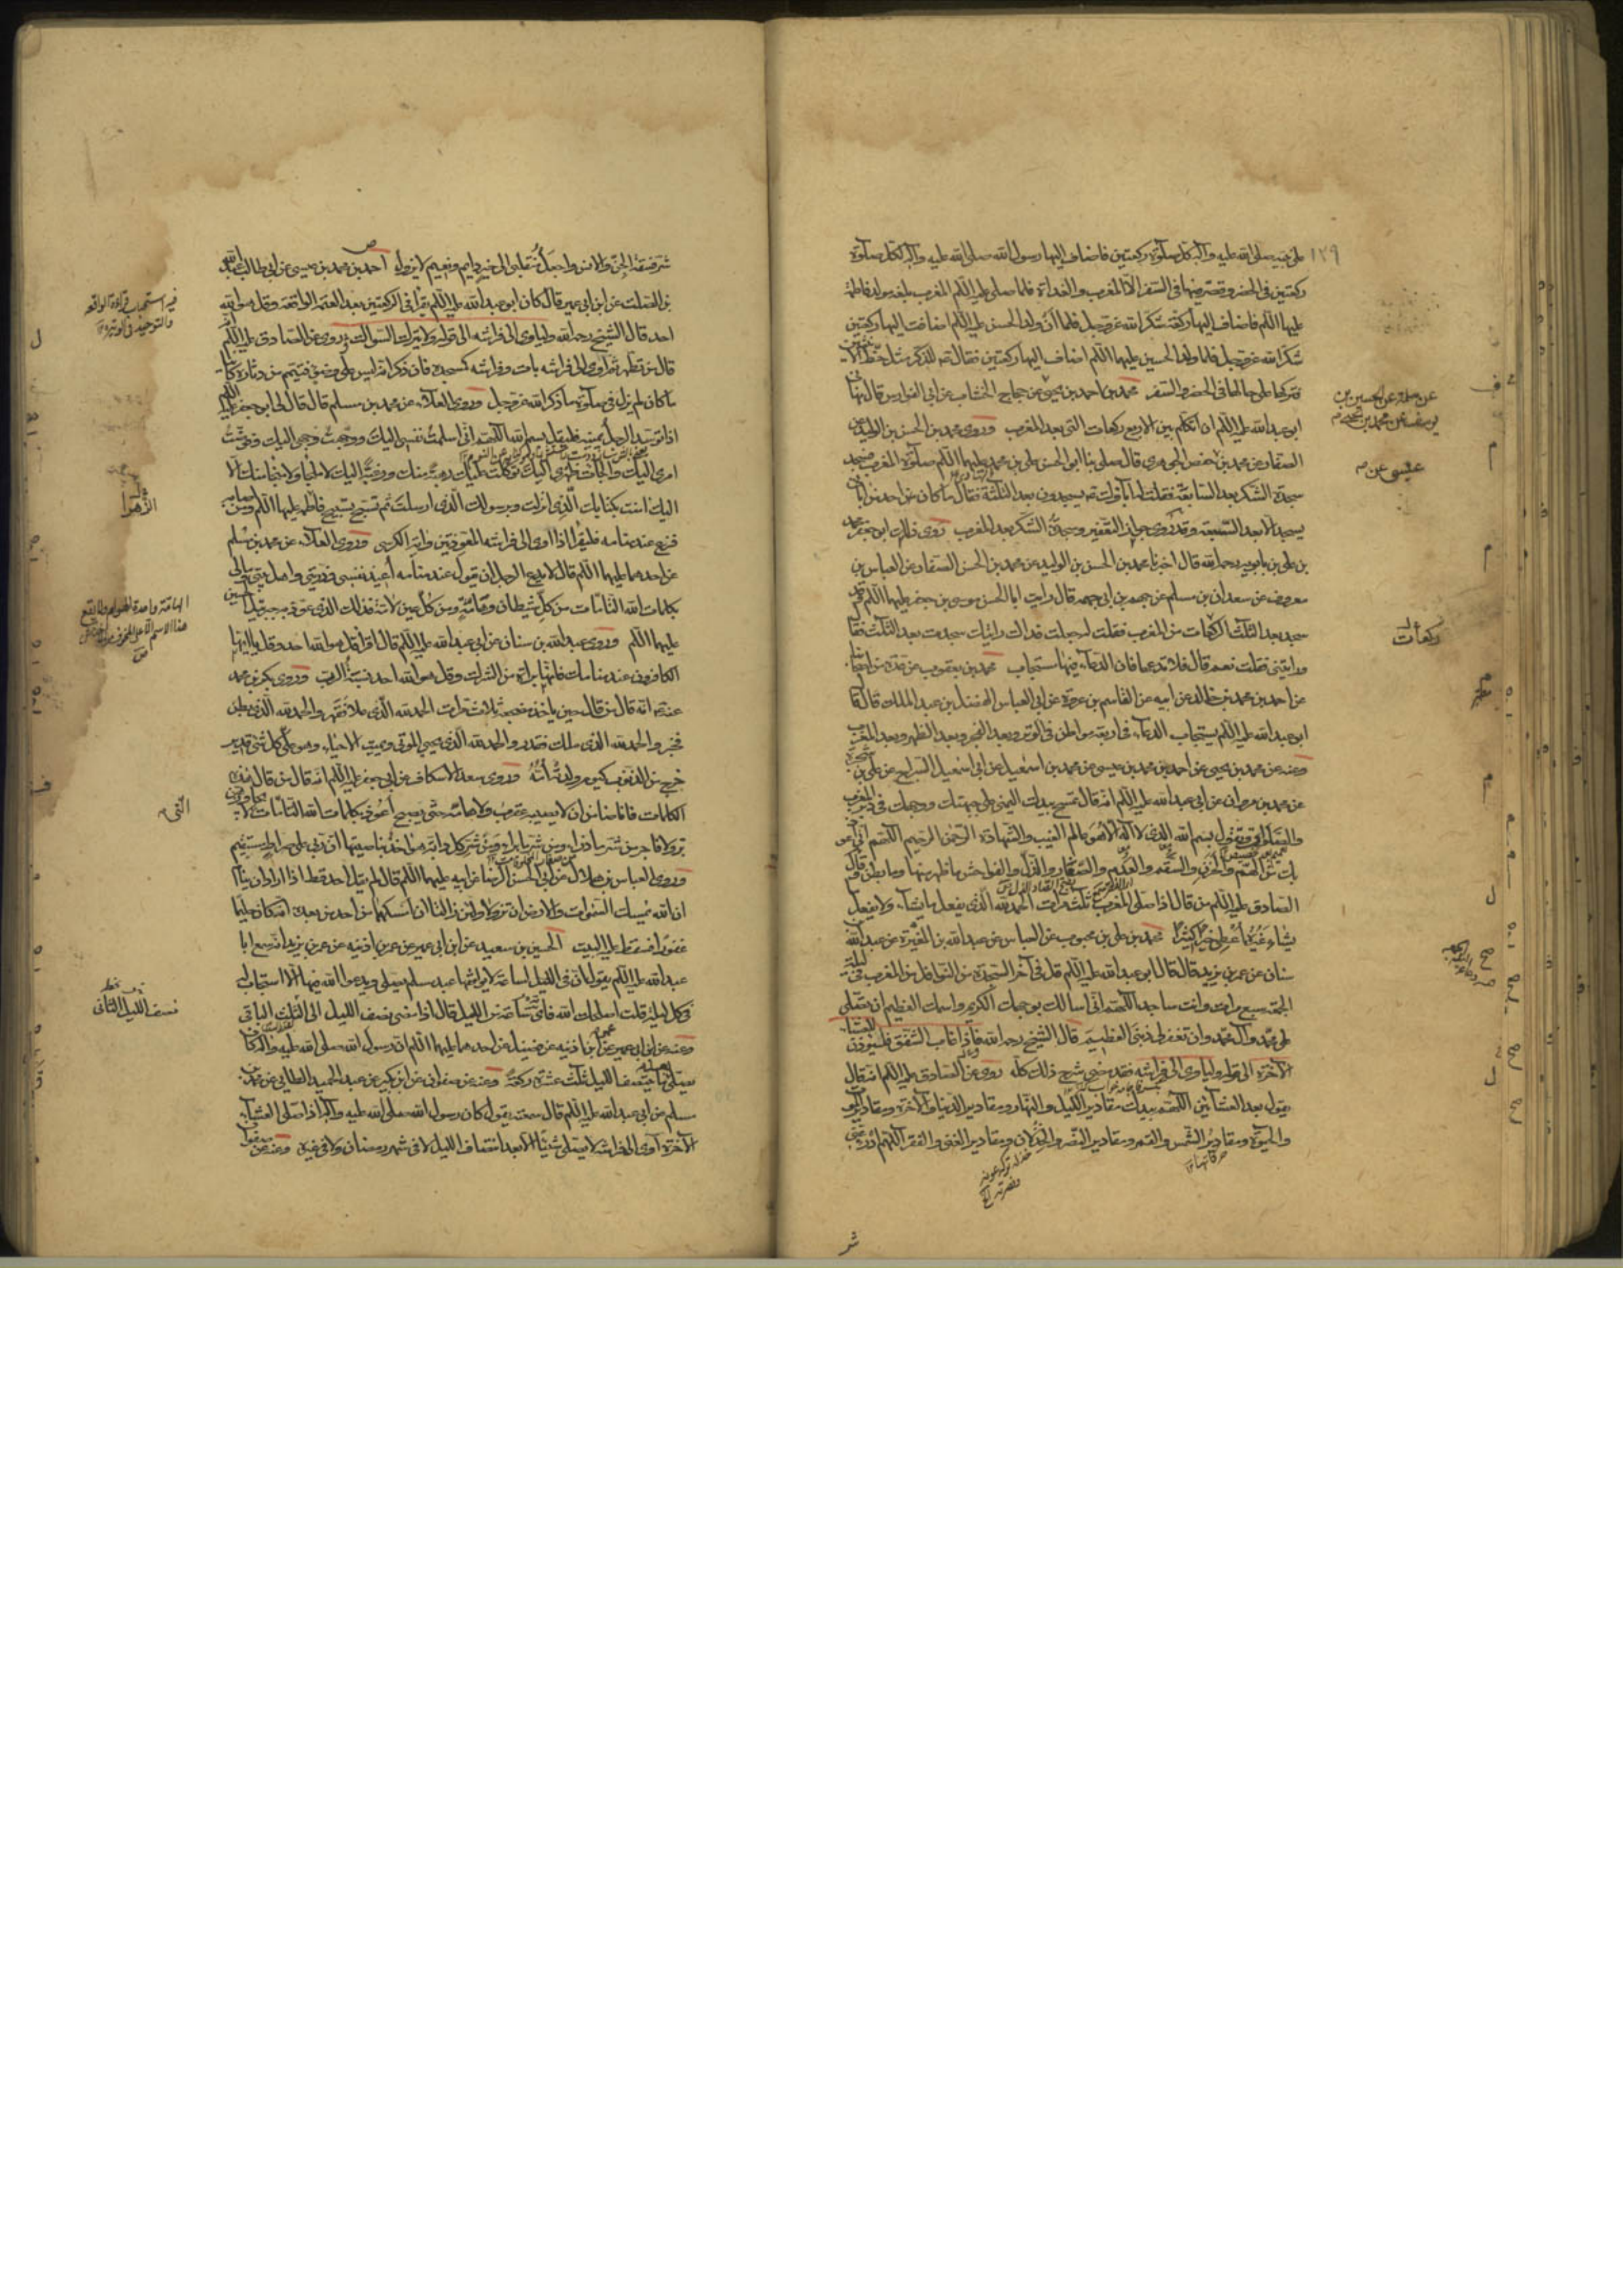 على نبيه صلى الله عليه وآله كل صلوة ركعتين فاضاف اليها رسول الله صلى الله عليه وآله لكل صلوة
ركعتين فى الحضر وقصر فيها فى السفر الا المغرب والغداة فلما صلى عليه السلم المغرب بلغه مولد فاطمة
عليها السلم فاضاف اليها ركعة شكرا لله عز وجل فلما ان ولد الحسن عليه السلم اضاف اليها ركعتين
شكرا لله عز وجل فلما ولد الحسين عليه السلم اضاف اليها ركعتين فقال للذكر مثل حظ الانثيين
فتركها على حالها فى الحضر والسفر محمد بن احمد بن يحيى عن حجاج الخشاب عن ابى الفوارس قال نهانى
ابو عبد الله عليه السلم ان اتكلم بين الاربع ركعات التى بعد المغرب وروى محمد بن الحسن بن الوليد عن
الصفار عن محمد بن حفص الجوهرى قال صلى بنا ابو الحسن على بن محمد عليهما السلم صلوة المغرب فسجد
سجدة الشكر بعد السابعة فقلت له اباؤك يسجدون بعد الثلثة فقال ما كان احد من ابائى
يسجد الا بعد السبعة وقد روى جواز التعفير وسجدة الشكر بعد المغرب روى ذلك ابو جعفر محمد
بن على بن بابويه رحمه الله قال اخبرنا محمد بن الحسن بن الوليد عن محمد بن الحسن الصفار عن العباس بن
معروف عن سعدان بن مسلم عن جهم بن ابى جهم قال رايت ابا الحسن موسى بن جعفر عليهما السلم وقد
سجد بعد الثلث الركعات من المغرب فقلت له جعلت فداك رايتك سجدت بعد الثلث فقال
ورايتنى فقلت نعم قال فلا تدعها فان الدعاء فيها مستجاب محمد بن يعقوب عن عدة من اصحابنا
عن احمد بن محمد بن خالد عن ابيه عن القاسم بن عروة عن ابى العباس الفضل بن عبد الملك قال قال
ابو عبد الله عليه السلم يستجاب الدعاء فى اربعة مواطن فى الوتر وبعد الفجر وبعد الظهر وبعد المغرب
وعنه عن محمد بن يحيى عن احمد بن محمد بن عيسى عن محمد بن اسمعيل عن ابى اسمعيل السراج عن على بن شجرة
عن محمد بن مروان عن ابى عبد الله عليه السلم انه قال تمسح بيدك اليمنى على جبهتك ووجهك فى دبر المغرب
والصلوات وتقول بسم الله الذى لا اله الا هو عالم الغيب والشهادة الرحمن الرحيم اللهم انى اعوذ
بك من الهم والحزن والسقم والعدم والصغار والذل والفواحش ما ظهر منها وما بطن وقال
الصادق عليه السلم من قال اذا صلى المغرب ثلث مرات الحمد لله الذى يفعل ما يشاء ولا يفعل
يشاء غيره اعطى خيرا كثيرا محمد بن على بن محبوب عن العباس عن عبد الله بن المغيرة عن عبد الله
سنان عن عمر بن يزيد قال قال ابو عبد الله عليه السلم قل فى آخر السجدة من النوافل من المغرب فى ليلة
الجمعة سبع مرات وانت ساجد اللهم انى اسالك بوجهك الكريم واسمك العظيم ان تصلى
على محمد وآل محمد وان تغفر لى ذنبى العظيم قال الشيخ رحمه الله فاذا غاب الشفق فليؤذن للعشاء
الآخرة الى قوله وليأوى الى فراشه فقد مضى شرح ذلك كله روى عن الصادق عليه السلم انه قال
يقول بعد العشائين اللهم بيدك مقادير الليل والنهار ومقادير الدنيا والآخرة ومقادير الموت
والحيوة ومقادير الشمس والقمر ومقادير النصر والخذلان ومقادير الغنى والفقر اللهم ادرء عنى
شر
عيسى عن
ركعات
شر فسقة الجن والانس واجعل منقلبى الى خير دايم ونعيم لا يزول احمد بن محمد بن عيسى عن ابى طالب عبد الله
بن الصلت عن ابن ابى عمير قال كان ابو عبد الله عليه السلم يقرأ فى الركعتين بعد العتمة الواقعة وقل هو الله
احد قال الشيخ رحمه الله وليأوى الى فراشه الى قوله ولا يترك السواك روى عن الصادق عليه السلم
قال من تطهر ثم آوى الى فراشه بات وفراشه كمسجده فان ذكر انه ليس على وضوء فتيمم من دثاره كائنا
ما كان لم يزل فى صلوة ما ذكر الله عز وجل وروى العلاء عن محمد بن مسلم قال قال لى ابو جعفر عليه السلم
اذا توسد الرجل يمينه فليقل بسم الله اللهم انى اسلمت نفسى اليك ووجهت وجهى اليك وفوضت
امرى اليك والجأت ظهرى اليك توكلت عليك رهبة منك ورغبة اليك لا ملجأ ولا منجا منك الا
اليك امنت بكتابك الذى انزلت وبرسولك الذى ارسلت ثم تسبح تسبيح فاطمة عليها السلم ومن
فزع عند منامه فليقرأ اذا اوى الى فراشه المعوذتين وآية الكرسى وروى العلاء عن محمد بن مسلم
عن احدهما عليهما السلم قال لا يدع الرجل ان يقول عند منامه اعيذ نفسى وذريتى واهل بيتى ومالى
بكلمات الله التامات من كل شيطان وهامة ومن كل عين لامة فذلك الذى عوذ به جبرئيل الحسن
عليهما السلم وروى عبد الله بن سنان عن ابى عبد الله عليه السلم قال اقرأ قل هو الله احد وقل يا ايها
الكافرون عند منامك فانها براءة من الشرك وقل هو الله احد نسبة الرب وروى بكر بن محمد
عنه انه قال من قال حين ياخذ مضجعه ثلاث مرات الحمد لله الذى علا فقهر والحمد لله الذى بطن
فخبر والحمد لله الذى ملك فقدر والحمد لله الذى يحيى الموتى ويميت الاحياء وهو على كل شئ قدير
خرج من الذنوب كيوم ولدته امه وروى سعد الاسكاف عن ابى جعفر عليه السلم انه قال من قال هذه
الكلمات فانا ضامن ان لا يصيبه عقرب ولا هامة حتى يصبح اعوذ بكلمات الله التامات التى لا يجاوزهن
بر ولا فاجر من شر ما ذرأ ومن شر ما برأ ومن شر كل دابة هو آخذ بناصيتها ان ربى على صراط مستقيم
وروى العباس بن هلال عن ابى الحسن الرضا عن ابيه عليهما السلم قال لم يقل احد قط اذا اراد ان ينام
ان الله يمسك السموات والارض ان تزولا ولئن زالتا ان امسكهما من احد من بعده انه كان حليما
غفورا فسقط عليه البيت الحسين بن سعيد عن ابن ابى عمير عن عمر بن اذينه عن عمر بن يزيد انه سمع ابا
عبد الله عليه السلم يقول ان فى الليل لساعة لا يوافقها عبد مسلم يصلى ويدعو الله فيها الا استجاب له
فى كل ليلة قلت اصلحك الله فاى ساعة من الليل قال اذا مضى نصف الليل الى الثلث الباقى
وعنه عن ابن ابى عمير عن ابن اذينه عن فضيل عن احدهما عليهما السلم ان رسول الله صلى الله عليه وآله كان
يصلى بعد ما ينتصف الليل ثلث عشرة ركعة وعنه عن صفوان عن ابن بكير عن عبد الحميد الطائى عن محمد بن
مسلم عن ابى عبد الله عليه السلم قال سمعته يقول كان رسول الله صلى الله عليه وآله اذا صلى العشاء
الآخرة آوى الى فراشه لا يصلى شيئا الا بعد انتصاف الليل لا فى شهر رمضان ولا فى غيره وعنه عن صفوان
فيه استحباب قراءة الواقعه
والتوحيد فى الوتيرة
الزهراء
التى
نصف الليل الثانى